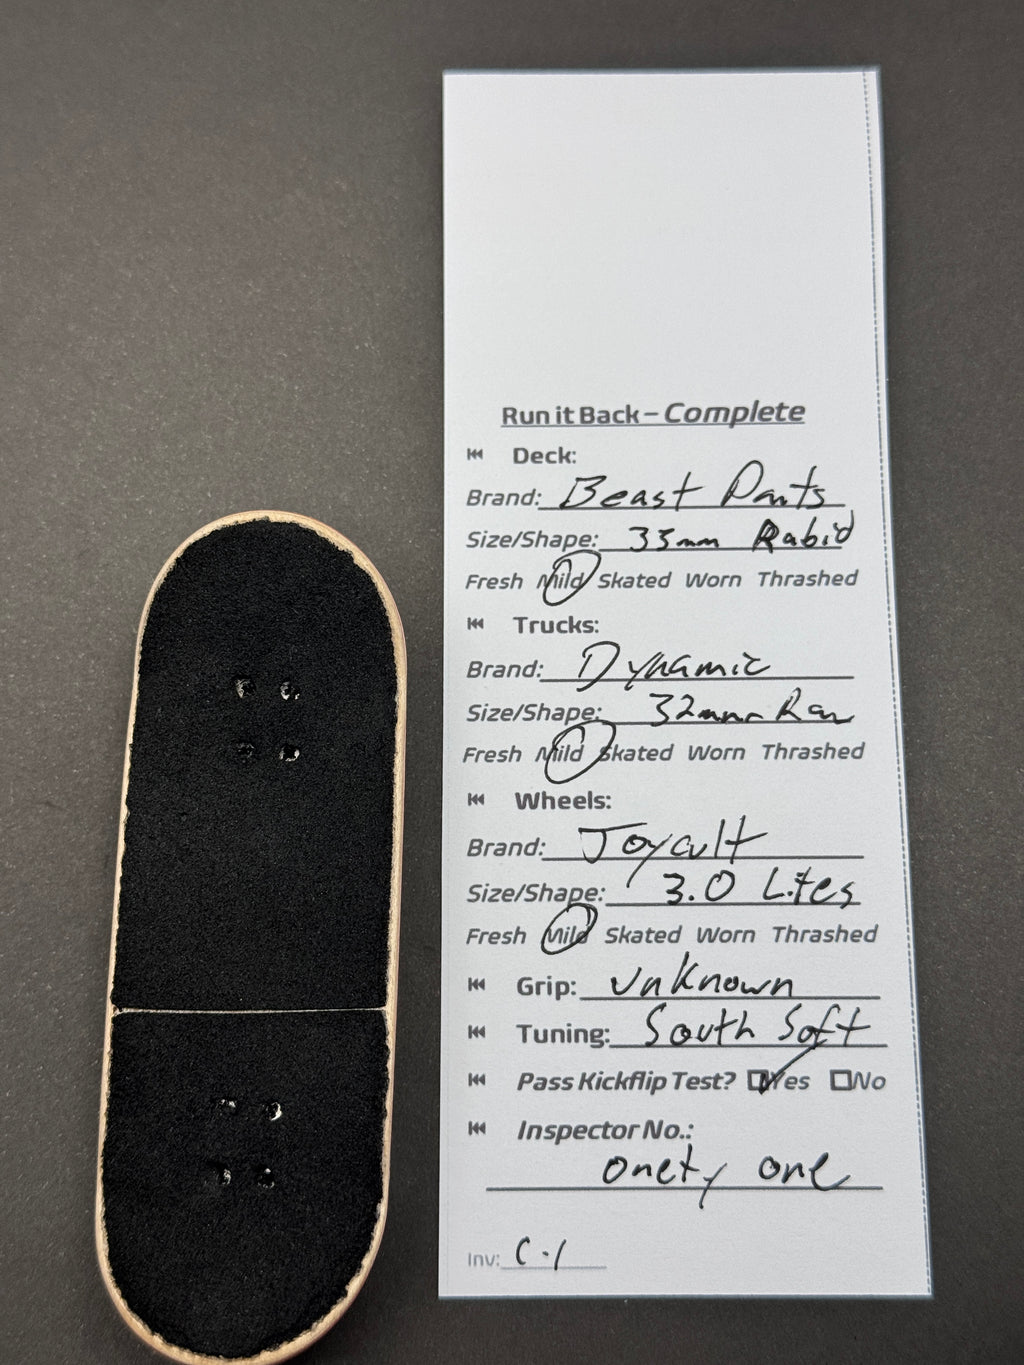 Run it Back – Complete
Deck:
Brand: Beast Pants
Size/Shape: 33mm Rabid
Fresh Mild Skated Worn Thrashed
Trucks:
Brand: Dynamic
Size/Shape: 32mm Raw
Fresh Mild Skated Worn Thrashed
Wheels:
Brand: Joycult
Size/Shape: 3.0 Lites
Fresh Mild Skated Worn Thrashed
Grip: Unknown
Tuning: South Soft
Pass Kickflip Test? Yes No
Inspector No.:
onety one
Inv: C-1